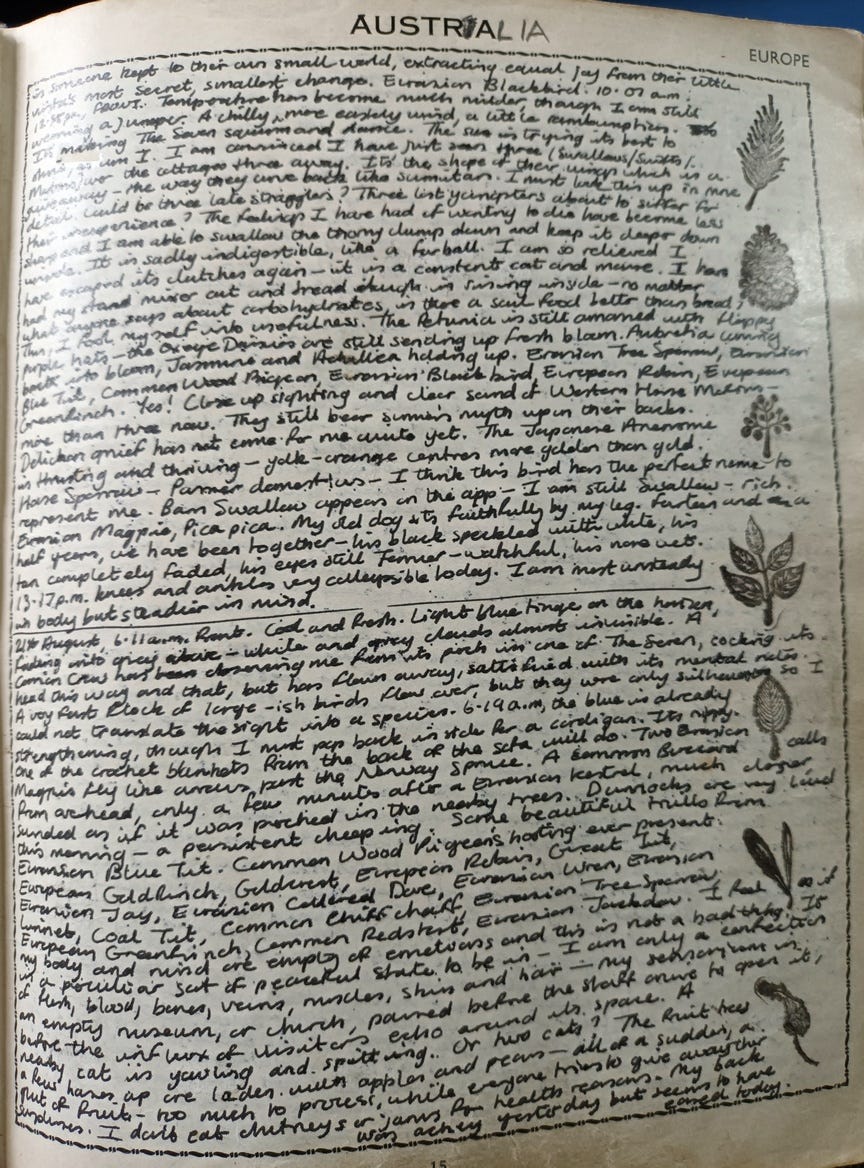 AUSTRALIA
EUROPE
is someone kept to their own small world, extracting equal joy from their little
vista's most secret, smallest change. Eurasian Blackbird. 10.07 a.m.
12.58pm, Front. Temperature has become much milder though I am still
wearing a jumper. A chilly, more easterly wind, a little rambunctious.
It's making The Seven squirm and dance. The sun is trying its best to
shine, as am I. I am convinced I have just seen three (Swallows/Swifts/
Martins) over the cottages three away. It's the shape of their wings which is a
giveaway - the way they curve back like scimitars. I must look this up in more
detail. Could be three late stragglers? Three last youngsters about to suffer for
their inexperience? The feelings I have had of wanting to die have become less
sharp and I am able to swallow the thorny clump down and keep it deeper down
inside. It is sadly indigestible, like a furball. I am so relieved I
have escaped its clutches again - it is a constant cat and mouse. I have
had my stand mixer out and bread dough is rising inside - no matter
what anyone says about carbohydrates, is there a soul food better than bread?
Thus, I fool myself into usefulness. The Petunia is still adorned with floppy
purple hats - the Oxeye Daisies are still sending up fresh bloom. Aubretia coming
back into bloom, Jasmine and Achillea holding up. Eurasian Tree Sparrow, Eurasian
Blue Tit, Common Wood Pigeon, Eurasian Blackbird, European Robin, European
Greenfinch. Yes! Close up sighting and clear sound of Western House Martins -
more than three now. They still bear summer's myth upon their backs.
Delichon grief has not come for me quite yet. The Japanese Anemone
is thrusting and thriving - yolk-orange centres more golden than gold.
House Sparrow - Passer domesticus - I think this bird has the perfect name to
represent me. Barn Swallow appears in the app - I am still Swallow-rich.
Eurasian Magpie, Pica pica. My old dog sits faithfully by my leg. Fourteen and a
half years, we have been together - his black speckled with white, his
tan completely faded, his eyes still Terrier-watchful, his nose wet.
13.17p.m. knees and ankles very collapsible today. I am most unsteady
in body but steadier in mind.
21st August, 6.11a.m. Front. Cool and fresh. Light blue tinge on the horizon,
fading into grey above - white and grey clouds almost invisible. A
Carrion Crow has been observing me from its perch in one of The Seven, cocking its
head this way and that, but has flown away, satisfied with its mental notes.
A very fast flock of large-ish birds flew over, but they were only silhouettes so I
could not translate the sight into a species. 6.19a.m, the blue is already
strengthening, though I must pop back inside for a cardigan. It's nippy.
One of the crochet blankets from the back of the sofa will do. Two Eurasian
Magpies fly like arrows, past the Norway Spruce. A Common Buzzard calls
from overhead, only a few minutes after a Eurasian Kestrel, much closer
sounded as if it was perched in the nearby trees. Dunnocks are very loud
this morning - a persistent cheeping. Some beautiful trills from
Eurasian Blue Tit. Common Wood Pigeon's hooting ever present.
European Goldfinch, Goldcrest, European Robin, Great Tit,
Eurasian Jay, Eurasian Collared Dove, Eurasian Wren, Eurasian
Linnet, Coal Tit, Common Chiffchaff, Eurasian Tree Sparrow
European Greenfinch, Common Redstart, Eurasian Jackdaw. I feel as if
my body and mind are empty of emotions and this is not a bad thing. It
is a peculiar sort of peaceful state to be in - I am only a confection
of flesh, blood, bones, veins, muscles, skin and hair - my sensorium is
an empty museum, or church, paused before the staff arrive to open it,
before the influx of visitors echo around its space. A
nearby cat is yowling and spitting. Or two cats? The fruit trees
a few houses up are laden with apples and pears - all of a sudden, a
glut of fruit - too much to process, while everyone tries to give away their
surpluses. I don't eat chutneys or jams for health reasons. My back
was achey yesterday but seems to have
eased today.
15